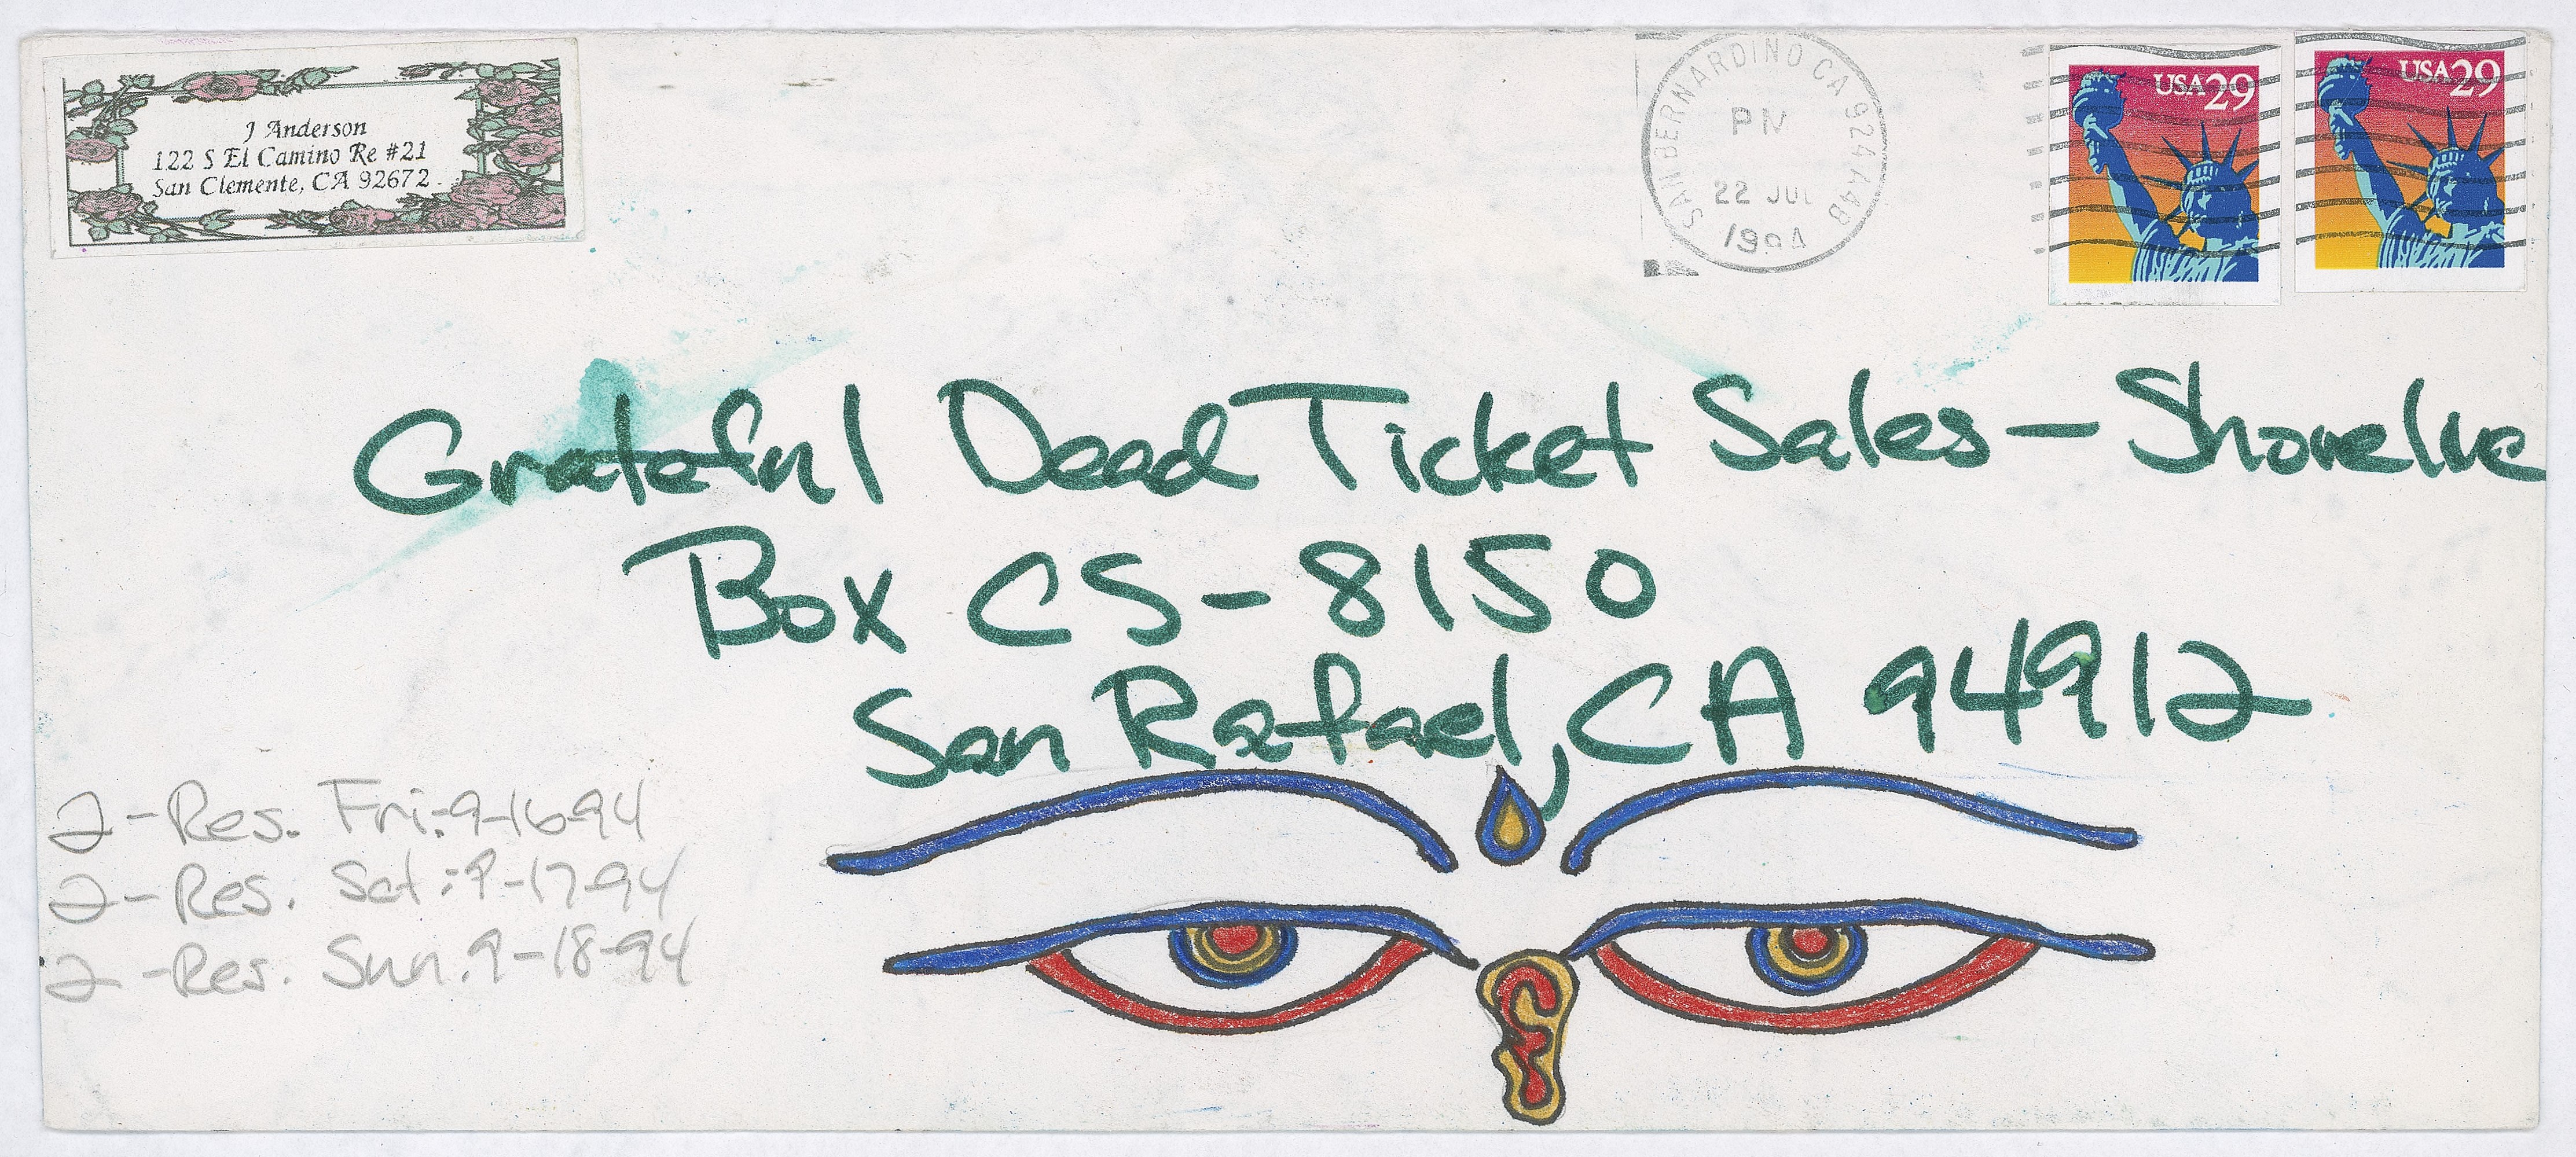 J Anderson
122 S El Camino Re #21
San Clemente, CA 92672
SAN BERNARDINO CA 924
PM
22 JUL
1994
USA29
USA29
Grateful Dead Ticket Sales — Shoreline
Box CS-8150
San Rafael, CA 94912
2-Res. Fri:9-16-94
2-Res. Sat:9-17-94
2-Res. Sun.9-18-94